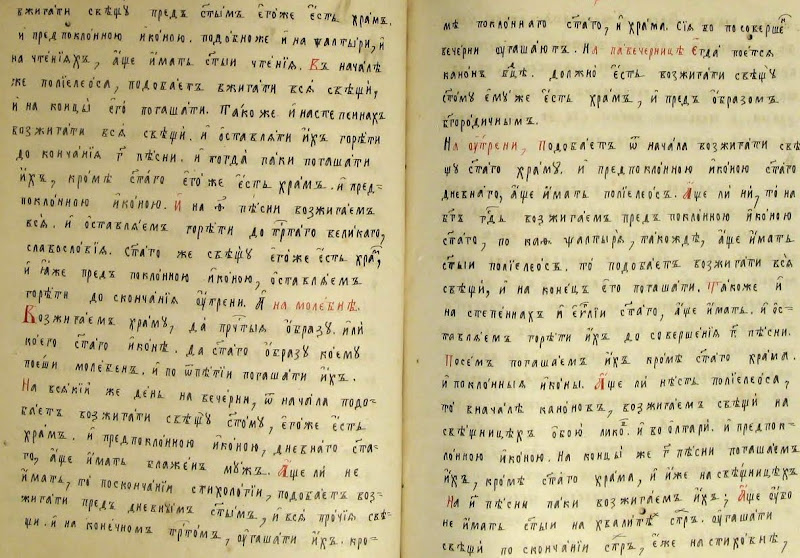 вжига́ти свѣщꙋ̀ пред̾ ст҃ы́мъ є҆го́же є҆́сть храм̾.
и҆ предпокло́нною и҆ко́ною. подо́бноже и҆ на ѱалты́ри, и҆
на чте́нїѧхъ, а҆́ще и҆́мать ст҃ы́и чте́нїѧ. В̾ нача́лѣ
же полїеле́оса, подоба́етъ вжига́ти всѧ̀ свѣ́щи,
и҆ на концы̀ є҆гѡ̀ погаша́ти. Та́коже и҆ настепе́ннахъ
возжига́ти всѧ̀ свѣ́щи. и҆ ѡ҆ставлѧ́ти и҆̀хъ горѣ́ти
до конча́нїѧ г҃ пѣ́сни. и҆ тогда̀ па́ки погаша́ти
и҆̀хъ, кро́мѣ ст҃а́го є҆го́же є҆́сть храм̾. и҆ пред-
покло́нною и҆ко́ною. И҆ на ѳ҃ пѣ́сни возжига́ем̾
всѧ̀. и҆ ѡ҆ставлѧ́ем̾ горѣ́ти до трт҃а́го вели́каго,
славосло́вїѧ. ст҃а́го же свѣщꙋ̀ є҆го́же є҆́сть храм̾,
и҆ ꙗ҆́же пред̾ покло́нною и҆ко́ною, ѡ҆ставлѧ́ем̾
горѣ́ти до сконча́нїѧ ᲂу҆́трени. А҆ на моле́бнѣ.
Возжига́ем̾ хра́мꙋ, да̀ прч҃тыѧ ѡ҆́бразꙋ. и҆лѝ
кое́го ст҃а́го и҆ко́нѣ. да ст҃а́го ѡ҆́бразꙋ ко́емꙋ
пое́ши моле́бенъ. и҆ по ѿпѣ́тїи погаша́ти и҆̀хъ.
На всѧ́кїй же де́нь на вече́рни, ѿ нача́ла подо-
ба́етъ возжига́ти свѣщꙋ̀ ст҃о́мꙋ, є҆го́же є҆́сть
храм̾. и҆ предпокло́нною и҆ко́ною, дне́внаго ст҃а-
го, а҆́ще и҆́мать блаже́нъ мꙋ́жъ. А҆́ще ли не
и҆́мать, то посконча́нїи стихоло́гїи, подоба́етъ воз-
жига́ти пред̾ дне́внымъ ст҃ы́мъ, и҆ всѧ̀ про́чїѧ свѣ-
щи. и҆ на коне́чномъ трт҃о́мъ, ᲂу҆гаша́ти и҆̀хъ. кро-
мѣ покло́ннаго ст҃а́го, и҆ хра́ма. Сїѧ̀ бо по соверше́нїи
вече́рни ᲂу҆гаша́ютъ. На па́вечерницѣ Е҆гда̀ пое́тсѧ
кано́нъ бц҃ѣ. до́лжно є҆́сть возжига́ти свѣщꙋ̀
ст҃о́мꙋ є҆мꙋ́же є҆́сть храм̾, и҆ пред̾ ѡ҆́бразомъ
бг҃оро́дичнымъ.
На ᲂу҆́трени, Подоба́етъ ѿ нача́ла возжига́ти свѣ
щꙋ̀ ст҃а́го хра́мꙋ. и҆ предпокло́нною и҆ко́ною ст҃а́го
дне́внаго, а҆́ще и҆́мать полїеле́осъ. А҆́ще ли нѝ, то на
бг҃ъ гд҃ь возжига́ем̾ пред̾ покло́нною и҆ко́ною
ст҃а́го, по каѳ. ѱалты́рѧ, та́кождѐ, а҆́ще и҆́мать
ст҃ы́и полїеле́осъ. то̀ подоба́етъ возжига́ти всѧ̀
свѣ́щи, и҆ на коне́цъ є҆гѡ̀ погаша́ти. Та́коже и҆
на степе́ннахъ и҆ є҆ѵ҃лїи ст҃а́го, а҆́ще и҆́мать. и҆ ѡ҆с-
тавлѧ́ем̾ горѣ́ти и҆̀хъ до соверше́нїѧ г҃ пѣ́сни.
Посе́мъ погаша́ем̾ и҆̀хъ кро́мѣ ст҃а́го хра́ма.
и҆ покло́нныѧ и҆ко́ны. А҆́ще ли нѣ́сть полїеле́оса,
то̀ внача́лѣ кано́новъ, возжига́ем̾ свѣ́щи на
свѣ́щницѣхъ ѻ҆бою̀ ли́ков. и҆ во ѻ҆лтарѝ. и҆ предпок-
ло́нною и҆ко́ною. На концы́ же г҃ пѣ́сни погаша́ем̾
и҆̀хъ, кро́мѣ ст҃а́го хра́ма, и҆ и҆́же на свѣ́щницѣхъ
На и҃ пѣ́сни па́ки возжига́ем̾ и҆̀хъ; А҆́ще ᲂу҆́бо
не и҆́мать ст҃ы́и на хвали́те стр҃ъ. ᲂу҆гаша́ти
свѣ́щи по сконча́нїи стр҃ъ, є҆́же на стихо́внѣ,